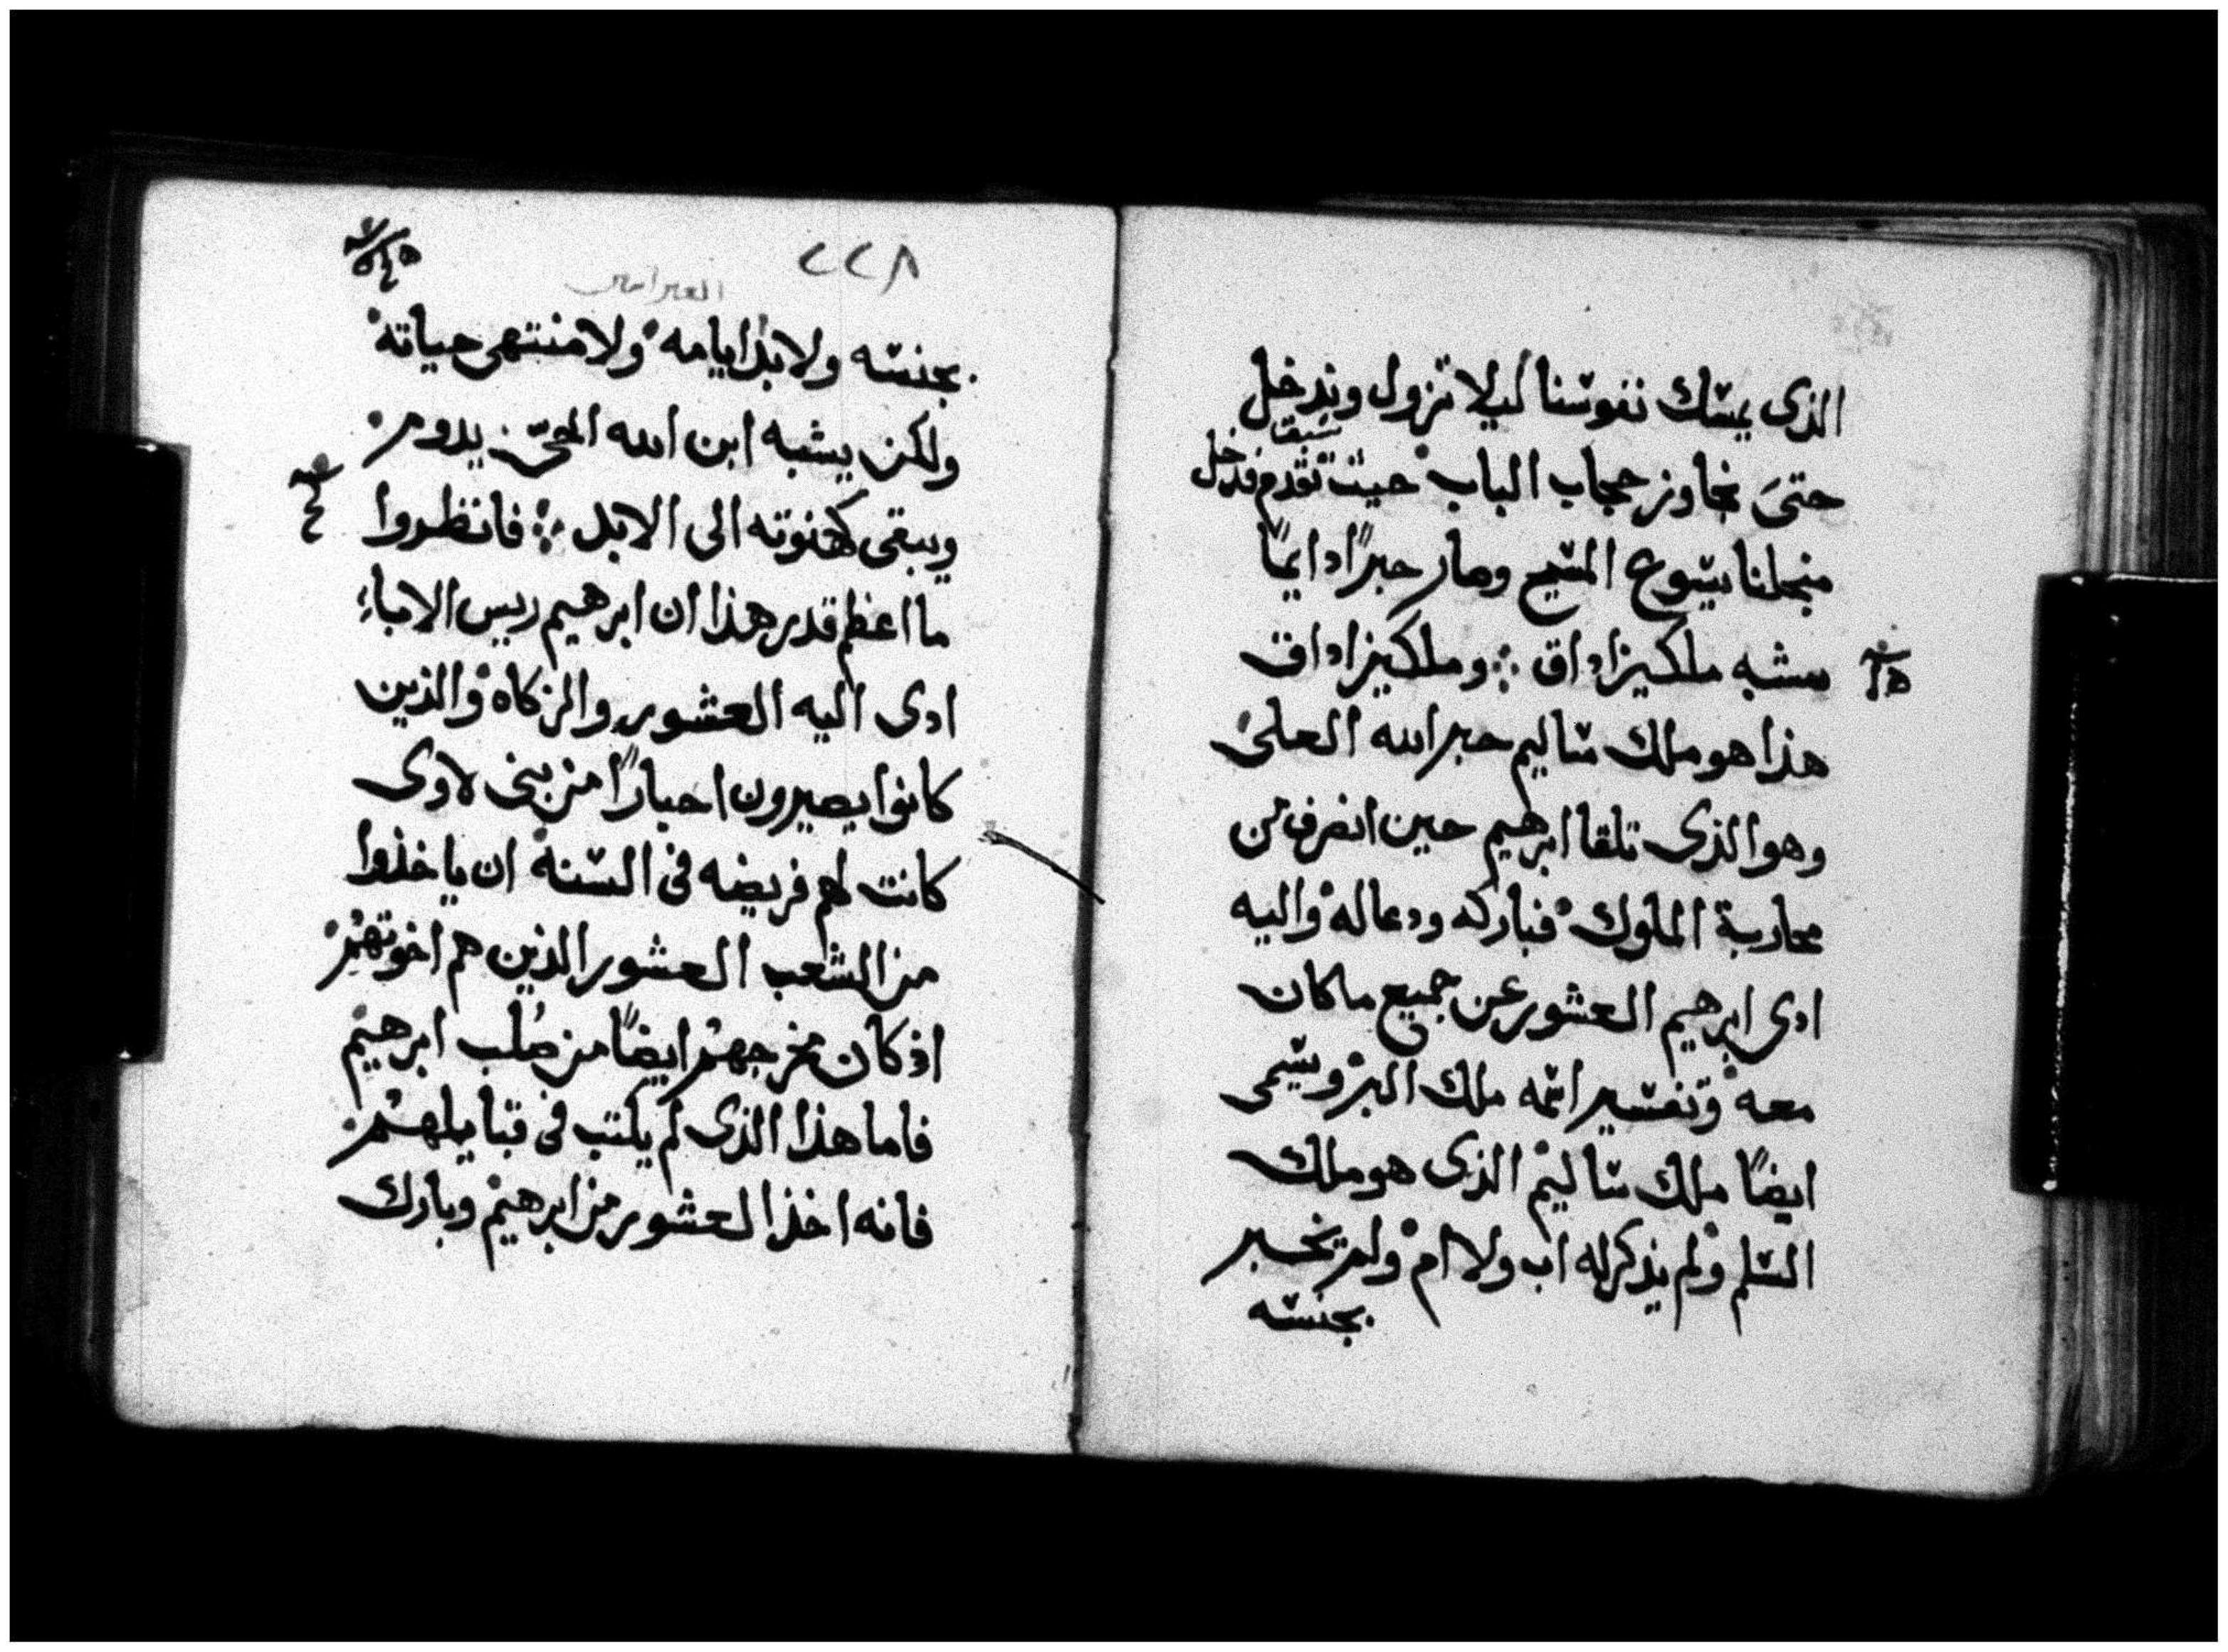 الذى يمسك نفوسنا ليلا تزول وندخل
حتى نجاوز حجاب الباب حيث تقدم فدخل
سبق
منجلنا يسوع المسيح وصار حبرًا دايمًا
بشبه ملكيزاداق ⁘ وملكيزاداق
هذا هو ملك ساليم حبر الله العلى
وهو الذى تلقا ابرهيم حين انصرف من
محاربة الملوك فباركه ودعا له واليه
ادى ابرهيم العشور عن جميع ما كان
معه وتفسير اسمه ملك البر ويسمى
ايضًا ملك ساليم الذى هو ملك
السلم ولم يذكر له اب ولا ام ولم يخبر
بجنسه
٢٢٨
العبرانيين
بجنسه ولا بدا ايامه ولا منتهى حياته
ولكن يشبه ابن الله الحى يدوم
ويبقى كهنوته الى الابد ⁘ فانظروا
ما اعظم قدر هذا ان ابرهيم ريس الاباء
ادى اليه العشور والزكاة والذين
كانوا يصيرون احبارًا من بنى لاوى
كانت لهم فريضه فى السنه ان ياخذوا
من الشعب العشور الذين هم اخوتهم
اذ كان مخرجهم ايضًا من صُلب ابرهيم
فاما هذا الذى لم يكتب فى قبايلهم
فانه اخذ العشور من ابرهيم وبارك